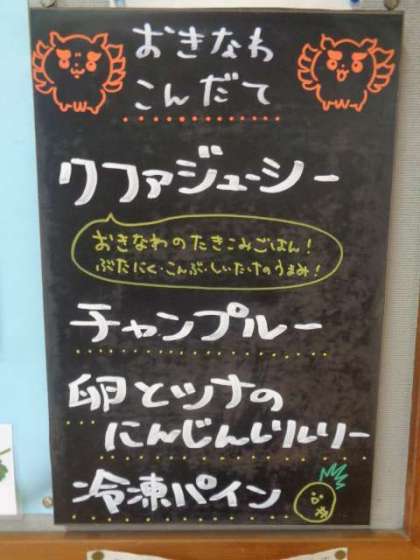 おきなわ
こんだて
クファジューシー
おきなわのたきこみごはん!
ぶたにく・こんぶ・しいたけのうまみ!
チャンプルー
卵とツナの
にんじんしりしりー
冷凍パイン